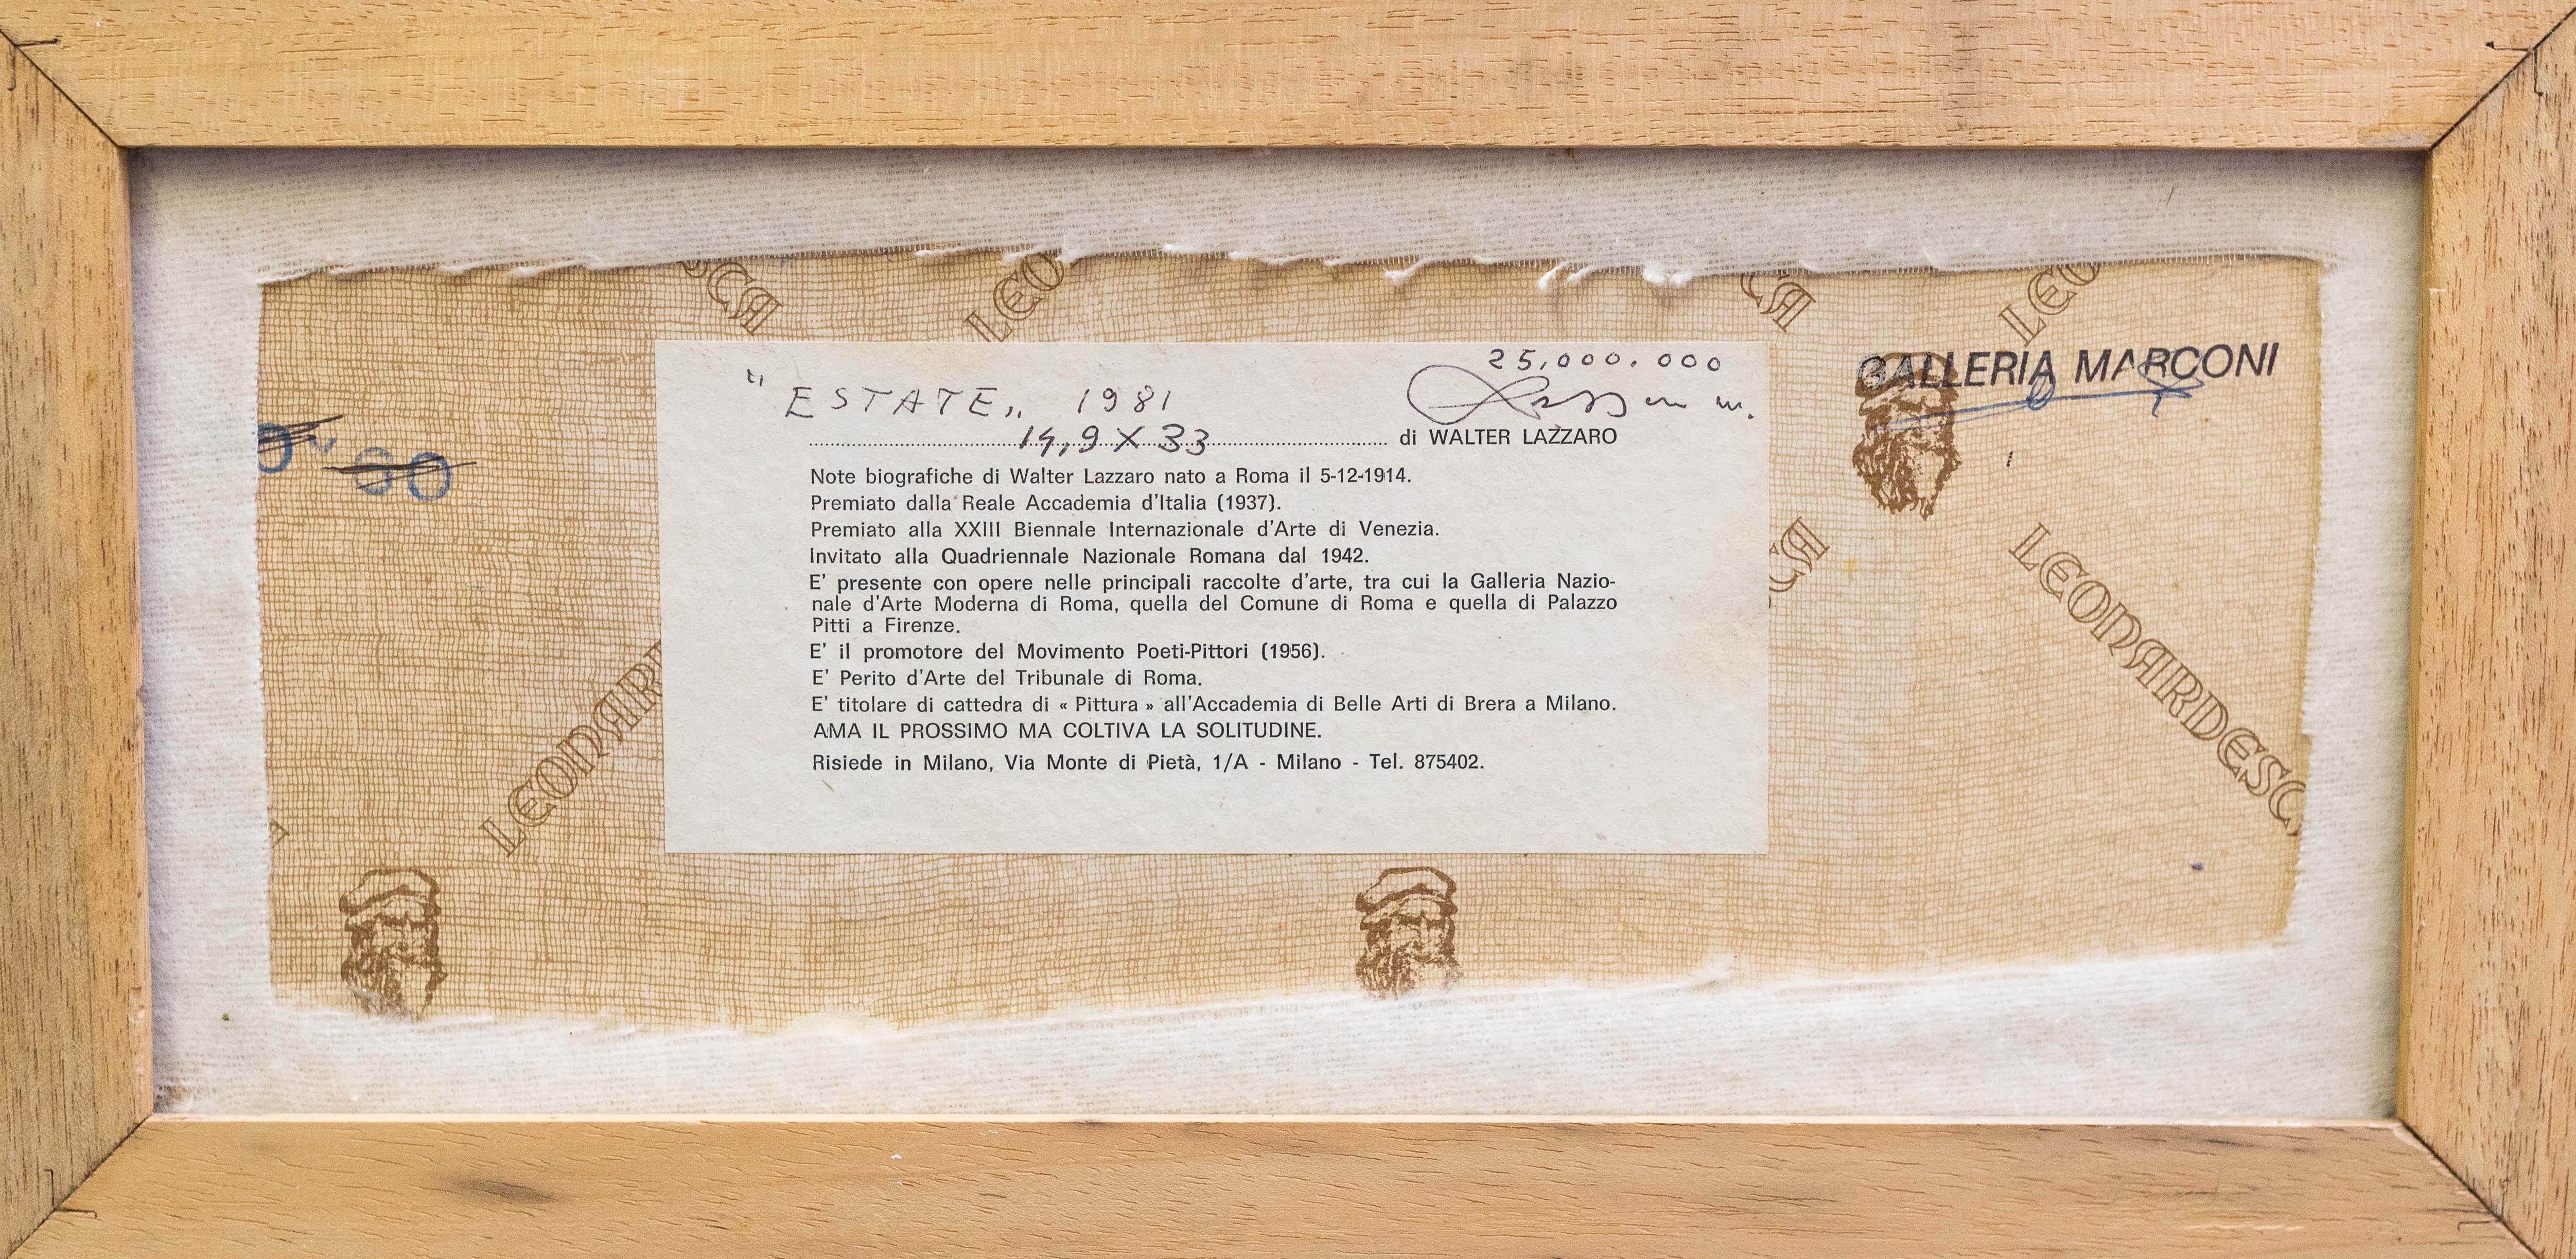 SCA
LEO
CA
LEO
25.000.000
"ESTATE„ 1981
GALLERIA MARCONI
14,9 X 33 di WALTER LAZZARO
Note biografiche di Walter Lazzaro nato a Roma il 5-12-1914.
Premiato dalla Reale Accademia d'Italia (1937).
Premiato alla XXIII Biennale Internazionale d'Arte di Venezia.
Invitato alla Quadriennale Nazionale Romana dal 1942.
E' presente con opere nelle principali raccolte d'arte, tra cui la Galleria Nazio-
nale d'Arte Moderna di Roma, quella del Comune di Roma e quella di Palazzo
Pitti a Firenze.
E' il promotore del Movimento Poeti-Pittori (1956).
E' Perito d'Arte del Tribunale di Roma.
E' titolare di cattedra di « Pittura » all'Accademia di Belle Arti di Brera a Milano.
AMA IL PROSSIMO MA COLTIVA LA SOLITUDINE.
Risiede in Milano, Via Monte di Pietà, 1/A - Milano - Tel. 875402.
LEONAR
CA
LEONARDESC